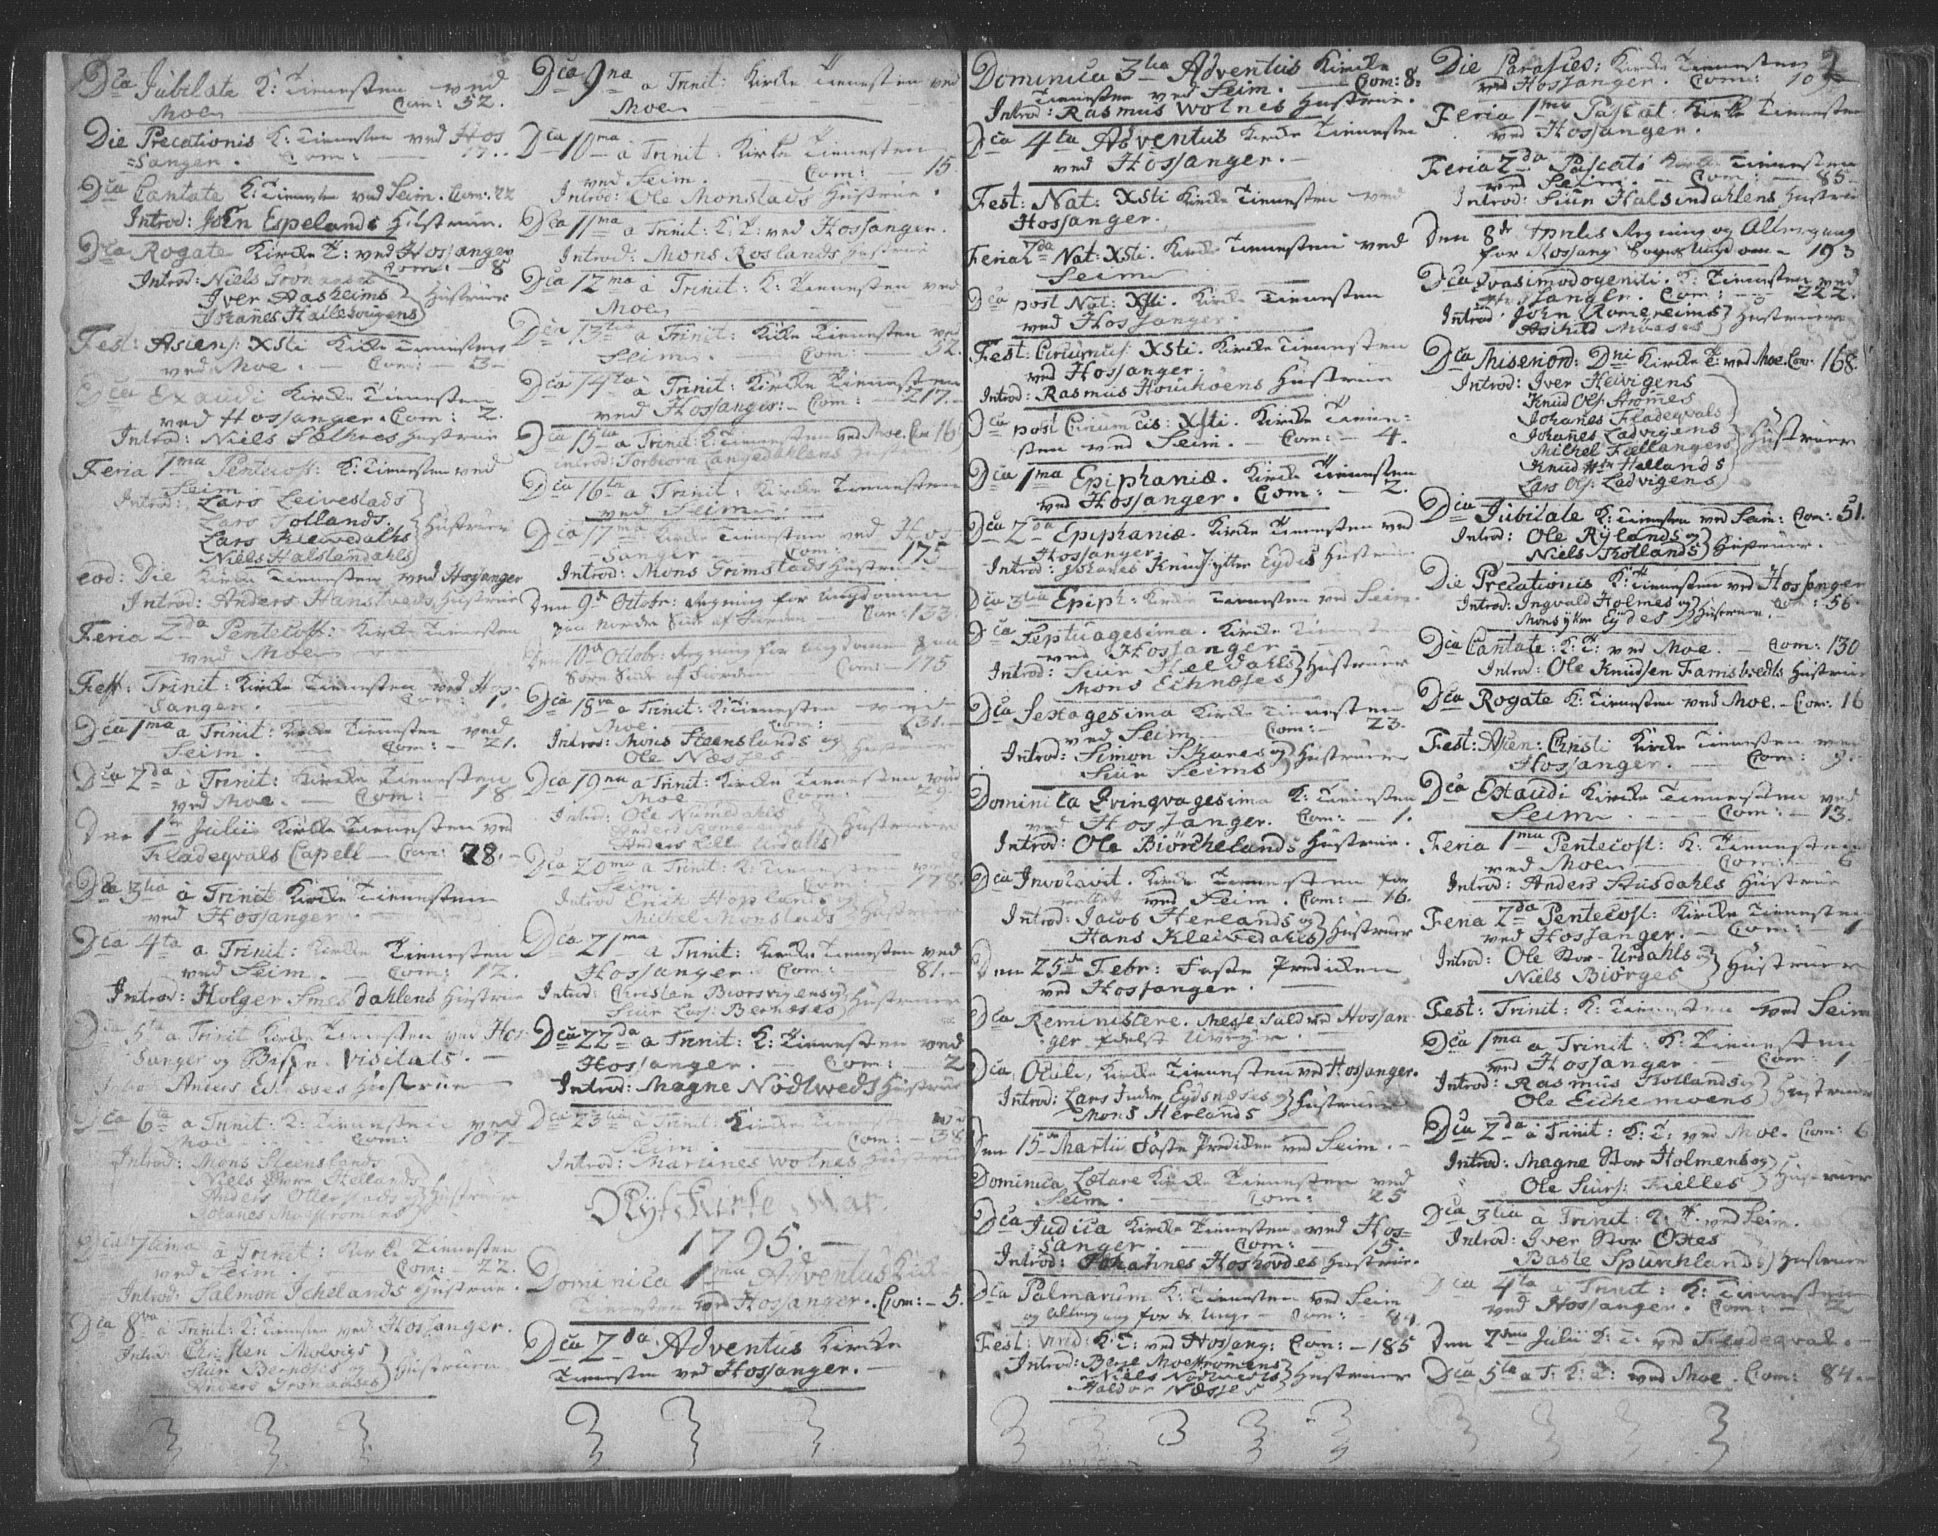 Dca Jubilate K: Tienesten ved
Moe — Com: 52.
Die Precationis K: Tienesten ved Hos
=sanger. Com:
Dca Cantate K: Tienesten ved Seim. Com: 22
Introd: John Espelands Hustrue.
Dca Rogate Kirke T: ved Hossanger
Com: — 8
Introd: Niels
Iver Aasheims
Johanes Hallesougens } Hustruer
Fest: Asiens: Xsti Kirke Tienesten
ved Moe. — Com: — 3 —
Dca Exaudi Kirke Tienesten
ved Hossanger. Com: 2.
Introd: Niels Hustrue
Feria 1ma Pentecost: K: Tienesten ved
Seim
Introd: Lars Leivestads
Lars Tollands.
Lars Kleivedahls
Niels Halslendahls } Hustruer
eod: Die Kirke Tienesten ved Hossanger
Introd: Anders Hanstveds Hustrue
Feria 2da Pentecost: Kirke Tienesten
ved Moe
Fest: Trinit: Kirke Tienesten ved Hos-
sanger. Com: 1.
Dca 1ma a Trinit: Kirke Tienesten ved
Seim. — Com: — 21.
Dca 2da à Trinit: Kirke Tienesten
ved Moe. — Com: — 18
Den 1te Julii Kirke Tienesten ved
Fladeqvals Capell — Com: 28. —
Dca 3tia à Trinit Kirke Tienesten
ved Hossanger.
Dca 4ta a Trinit: Kirke Tienesten
ved Seim. Com: 12.
Introd: Holger Smesdahlens Hustrue
Dca 5ta a Trinit Kirke Tienesten ved Hos-
sanger og Bispe Visitats. —
Introd: Hustrue
Dca 6ta a Trinit: K: Tienesten ved
Moe Com: 107
Introd: Mons Steenslands
Niels Store Hellands
Anders
Johanes Moestromens } Hustruer
Dca 7tima à Trinit: Kirke Tienesten
ved Seim. Com: — 22.
Introd: Salmon Ichelands Hustrue.
Dca 8va à Trinit: K: Tienesten ved Hossanger.
Introd: Christen Molvigs
Siur Bernæses og
Anders } Hustruer
Dca 9na a Trinit: Kirke Tienesten ved
Moe
Dca 10ma à Trinit: Kirke Tienesten
ved Seim. — Com: — 15.
Introd: Ole Monstads Hustrue.
Dca 11ma a Trinit: K: T: ved Hossanger.
Introd: Mons Roslands Hustrue
Dca 12ma à Trinit: K: Tienesten ved
Moe
Dca 13tia a Trinit: Kirke Tienesten ved
Seim. Com: 52.
Dca 14ta à Trinit: Kirke Tienesten
ved Hossanger: — Com: — 217.
Dca 15ta a Trinit: K: Tienesten ved Moe. Com 16
Introd: Torbiorn Langedahlens
Dca 16ta à Trinit: Kirke Tienesten
ved Seim.
Dca 17ma Kirke Tienesten ved Hos-
sanger — Com: — 175
Introd: Mons Grimstads Hustrue
Den 9de Octobr: Regning for ungdomen
paa Nordre Side af Fiorden — Com: 133.
Den 10de Octobr: Regning for ungdomen paa
Søre Side af Fiorden Com: — 175
Dca 18va a Trinit: K: Tienesten ved
Moe. Com: 231. —
Introd: Mons Steenslands og
Ole Næsses Hustruer
Dca 19na a Trinit: Kirke Tienesten ved
Moe Com: — 29.
Introd: Ole Numedahls
Anders
Anders Lill Urdals } Hustruer
Dca 20ma a Trinit: K: Tienesten ved
Seim. Com: 178
Introd Erich Hoplands og
Michel Monstads Hustruer
Dca 21ma a Trinit: Kirke Tienesten ved
Hossanger. Com: — 81. —
Introd: Christen Biorsvigens og
Siur Lars: Bernæses } Hustruer
Dca 22da a Trinit: K: Tienesten ved
Hossanger. — Com: — 2
Introd: Magne Nödtweds Hustrue
Dca 23tia a Trinit: Kirke Tienesten ved
Seim. Com: — 38
Introd: Martines Wolnes Hustrue
Nyt Kirke Aar.
1795. —
Dominica 1ma Adventus Kirke
Tienesten ved Hossanger. Com: — 5.
Dca 2da Adventus Kirke
Tienesten ved Hossanger. —
Dominica 3tia Adventus Kirke
Tienesten ved Seim. — Com: 8.
Introd: Rasmus Wolnes Hustrue.
Dca 4ta Adventus Kirke Tienesten
ved Hossanger. —
Fest: Nat: Xsti Kirke Tienesten ved
Hossanger.
Feria 2da Nat: Xsti. Kirke Tienesten ved
Seim
Dca post Nat: Xsti. Kirke Tienesten
ved Hossanger.
Fest: Circumcis: Xsti. Kirke Tienesten
ved Hossanger.
Introd: Rasmus Hustrue
Dca post Circumcis: Xsti. Kirke Tiene=
sten ved Seim. — Com: — 4.
Dca 1ma Epiphaniæ. Kirke Tienesten
ved Hossanger. Com: — 2.
Dca 2da Epiphaniæ. Kirke Tienesten ved
Hossanger.
Introd: Johanes Knuds: ytter Eydes Hustrue
Dca 3tia Epiph: Kirke Tienesten ved Seim.
Dca Septuagesima. Kirke Tienesten
ved Hossanger
Introd: Siur
Mons Echnæses } Hustruer
Dca Sexagesima Kirke Tienesten
ved Seim — Com: — 23.
Introd: Simon Skanes og
Siur Seims } Hustruer
Dominica Qvinqvagesima K: Tienesten
ved Hossanger. Com: — 1.
Introd: Ole Biörchelands Hustrue.
Dca Invocavit. Kirke Tienesten for
rettet ved Seim. Com: — 16.
Introd: Jacob Herlands og
Hans Kleivedahls } Hustruer
Den 25de Febr: Faste Prediken
ved Hossanger. —
Dca Reministere. Messe Fald ved Hossan-
ger
Dca Oculi, Kirke Tienesten ved Hossanger.
Introd: Lars Indre Eydsnæses og
Mons Herlands } Hustruer
Den 15de Martii Faste Prediken ved Seim. —
Dominica Lætare Kirke Tienesten ved
Seim. — Com: 25
Dca Judica Kirke Tienesten ved Hos=
sanger — Com: — 15.
Introd: Johannes Hoshovdes Hustrue.
Dca Palmarum K: Tienesten ved Seim
og for de Unge — Com: — 84.
Fest: virid: K: T: ved Hossang: Com: — 185
Introd: Berje Moestromens
Niels Nodtweds
Haldor Næsses } Hustruer
2
Die Parasces: Kirke Tienesten
ved Hossanger. Com: 10
Feria 1ma Pascat: Kirke Tienesten
ved Hossanger.
Feria 2da Pascatis Kirke Tienesten
ved Seim — Com: — 85.
Introd: Siur Halsendahlens Hustrue
Den 8de Aprilis Regning og Altergang
for Hossang Sogns Ungdom — 193
Dca Qvasimodogeniti. K: Tienesten ved
Hossanger. Com: — 222.
Introd: John Romereims
Askild Moeses } Hustruer
Dca Misericord: Dni Kirke T: ved Moe. Com: 168
Introd: Iver Heivigens
Knud Ols: Strömes
Johanes Fladeqvals
Johanes Ladvigens
Michel Fællangers
Knud Hellands
Lars Ols: Ladvigens } Hustruer
Dca Jubilate K: Tienesten ved Seim: Com: 51.
Introd: Ole Rylands og
Niels Kollands } Hustruer.
Die Precationis K: T: ved Hossanger
Introd: Ingvald Holmes og Com: — 56
Mons ytre Eydes } Hustruer
Dca Cantate: K: T: ved Moe. — Com: 130
Introd: Ole Knudsen Famstvedts Hustrue
Dca Rogate K: Tienesten ved Moe. — Com: 16
Fest: Ascen: Christi Kirke Tienesten ved
Hossanger. — Com: 9. —
Dca Exaudi Kirke Tienesten ved
Seim — Com: — 13.
Feria 1ma Pentecost: K: Tienesten
ved Moe — Com: — 6
Introd: Anders Stusdahls Hustrue
Feria 2da Pentecost: Kirke Tienesten
ved Hossanger. — Com: — 1
Introd: Ole Stor-Urdahls og
Niels Biorges } Hustruer
Fest: Trinit: K: Tienesten ved Seim
Dca 1ma a Trinit: K: Tienesten
ved Hossanger — Com: 1
Introd: Rasmus Kollands og
Ole Eichemoens } Hustruer
Dca 2da à Trinit: K: T: ved Moe. Com: 6
Introd: Magne Stor Holmens og
Ole Siurs: Fielles } Hustruer
Dca 3tia à Trinit: K: T: ved Seim.
Introd: Iver Stor Oxes
Baste Spurchlands } Hustruer
Dca 4ta à Trinit: K: Tienesten
ved Hossanger. Com: — 2
Den 7de Julii K: T: ved Fladeqval. —
Dca 5ta a T: K: T: ved Moe. Com: 84. —